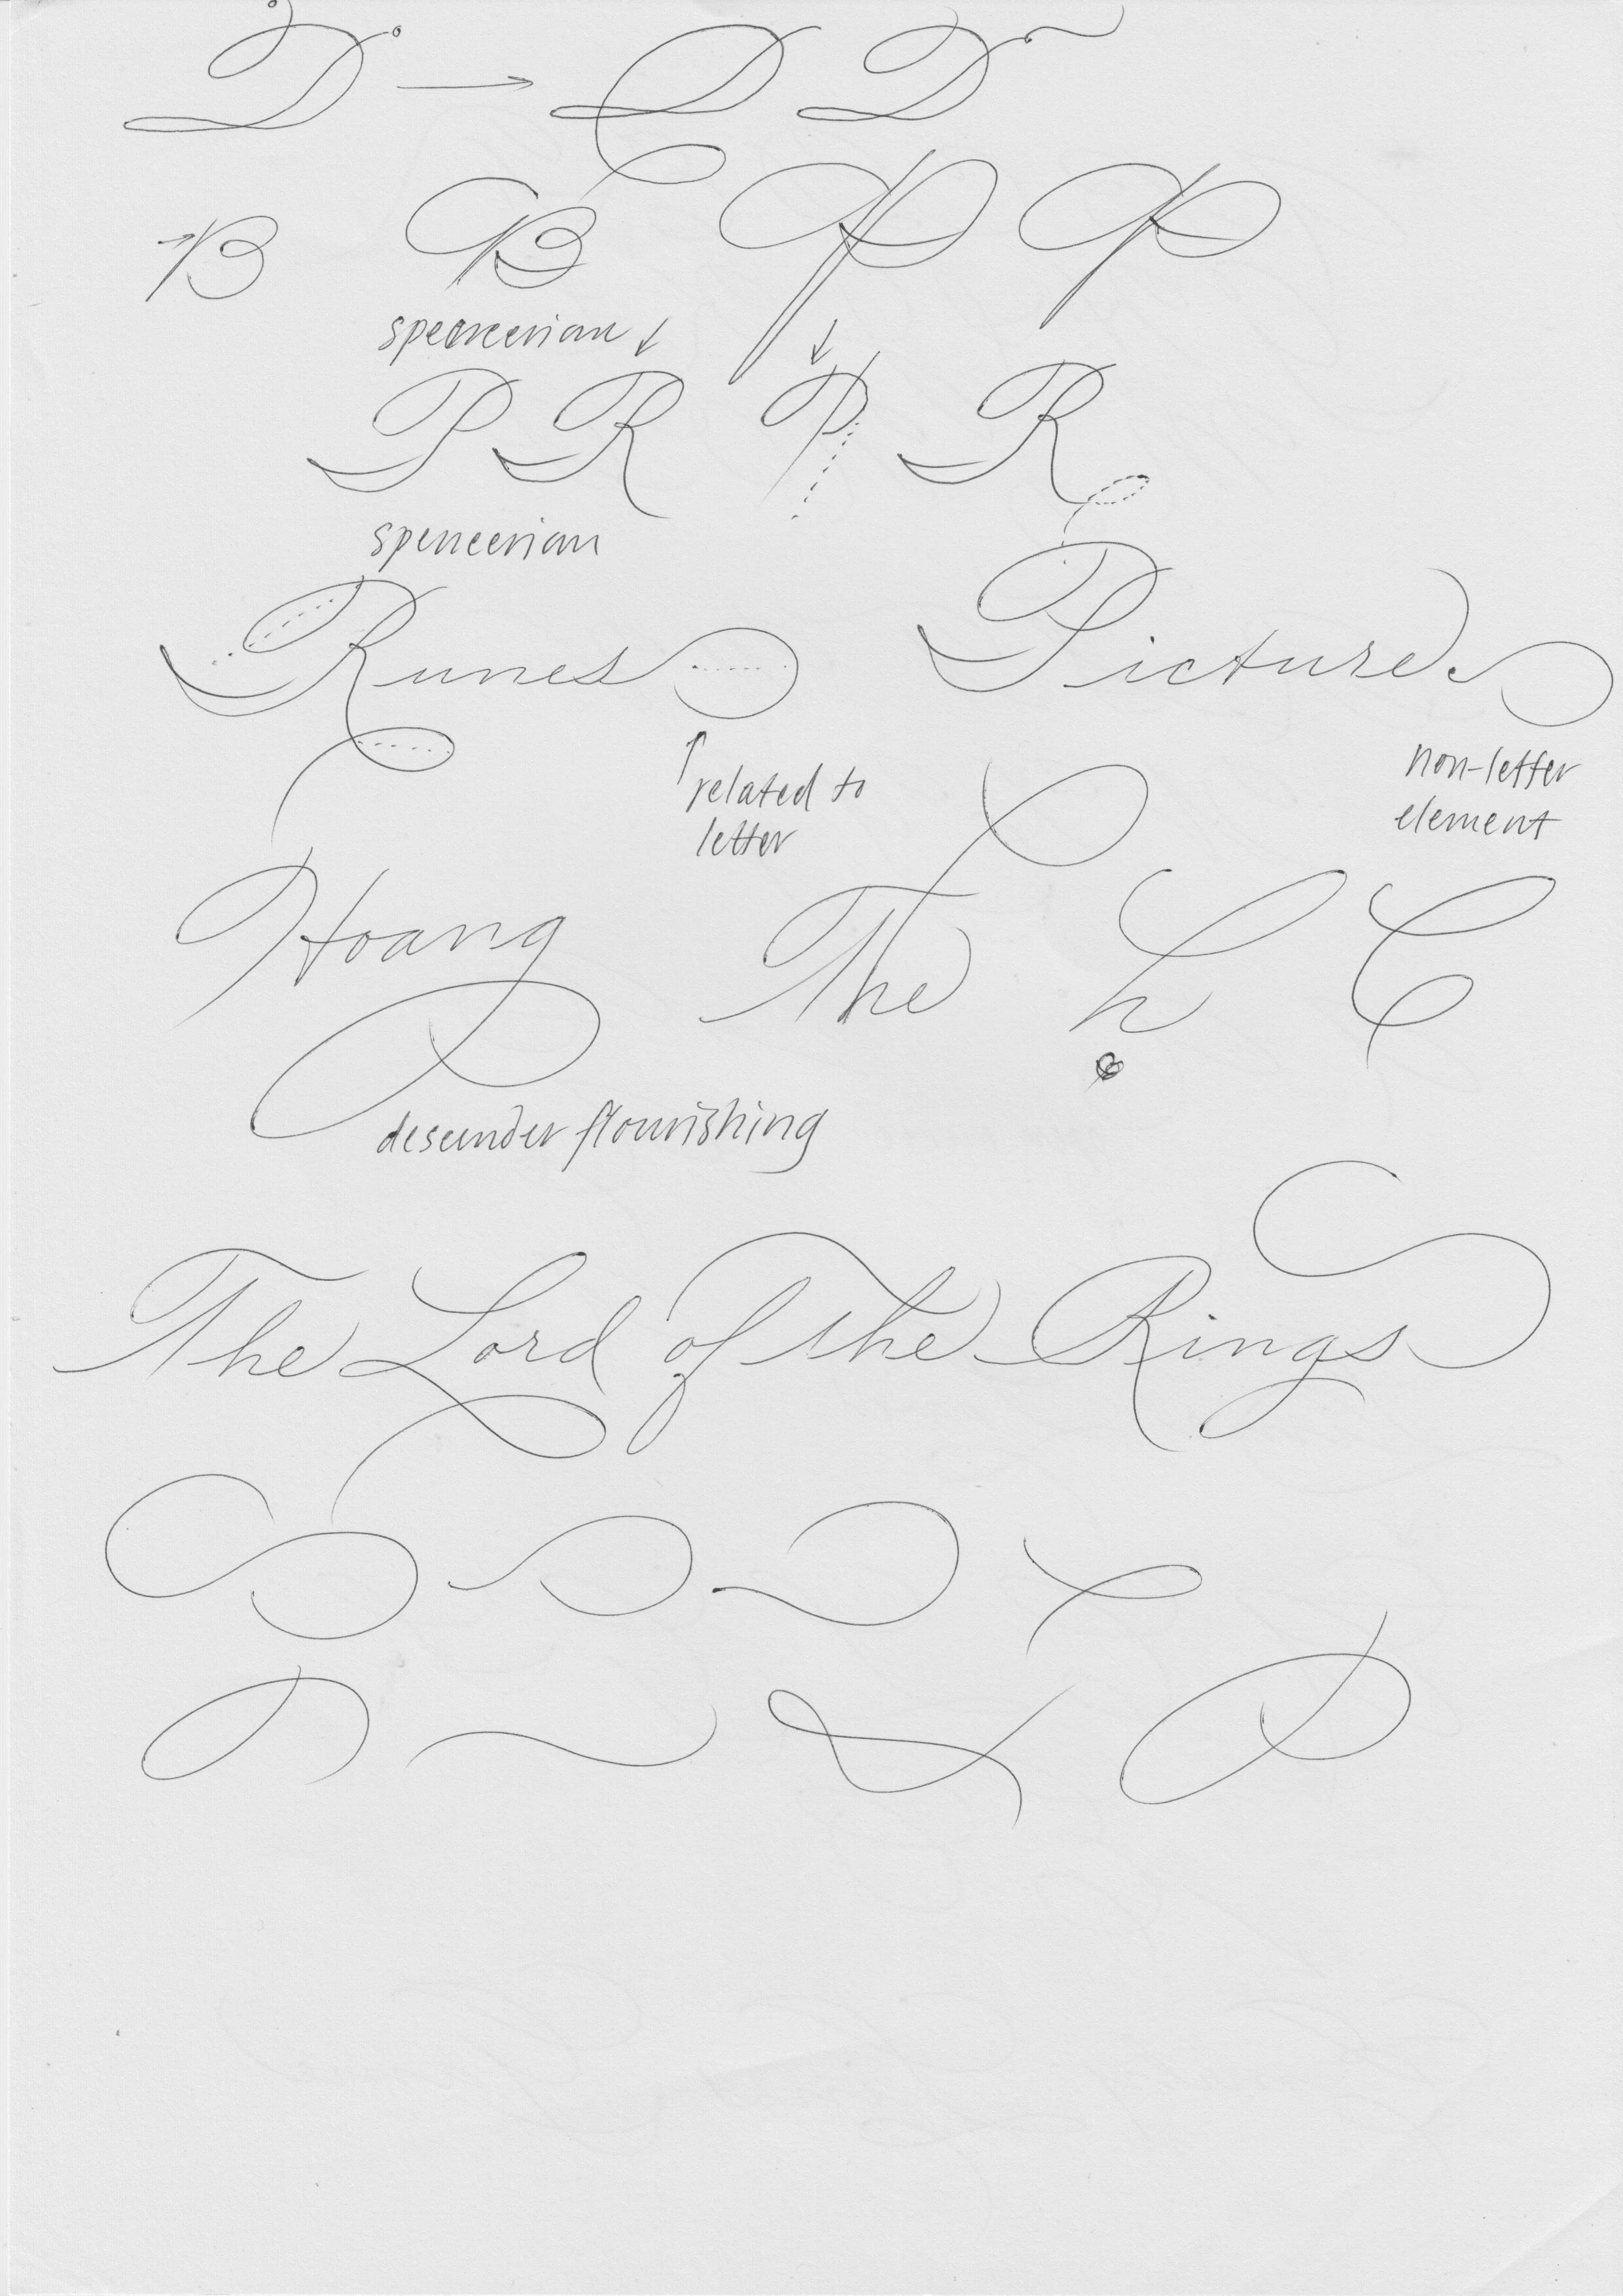 D → D D
B B P P
spencerian ↓ ↓
P R P R
spencerian
Runes Picture
↑ related to
letter
non-letter
element
Hoang The h C
descender flourishing
The Lord of the Rings